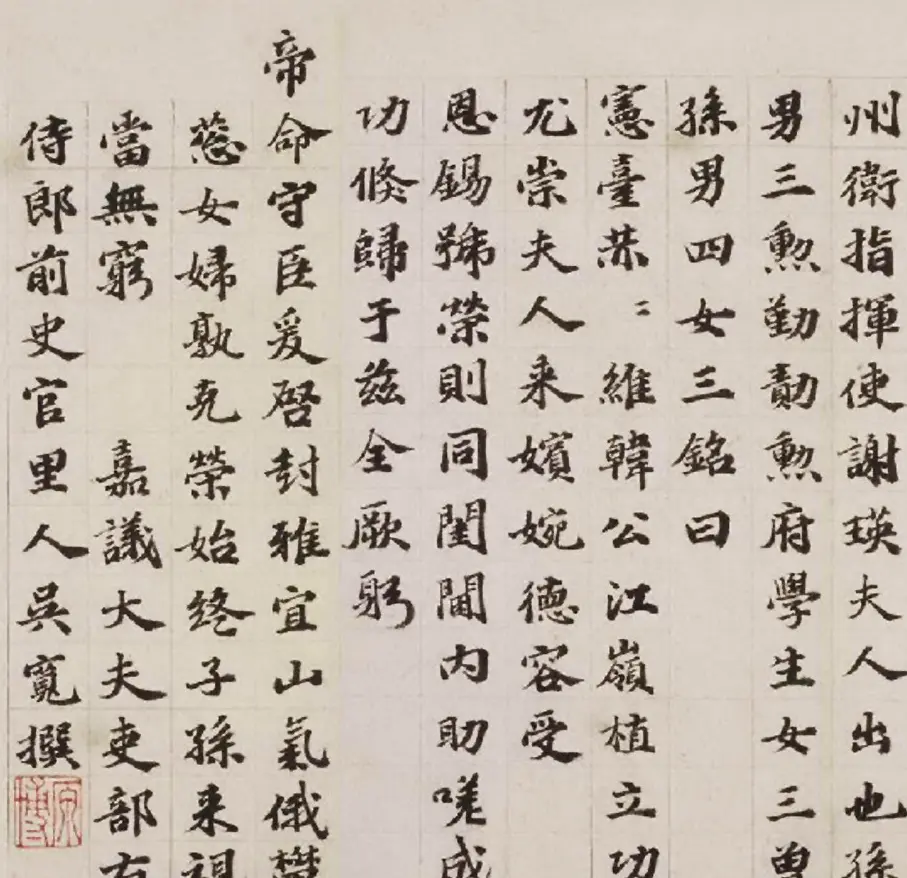 州衛指揮使謝瑛夫人出也孫
男三勲勤勣勲府學生女三曽
孫男四女三銘曰
憲臺〻維韓公江嶺植立功
尤崇夫人来嬪婉德容受
恩錫號榮則同閨閫内助嗟成
功倐歸于兹全厥躬
帝命守臣爰啓封雅宜山氣俄欝
慈女婦孰克榮始終子孫来視
當無窮 嘉議大夫吏部右
侍郎前史官里人吳寛撰
原博